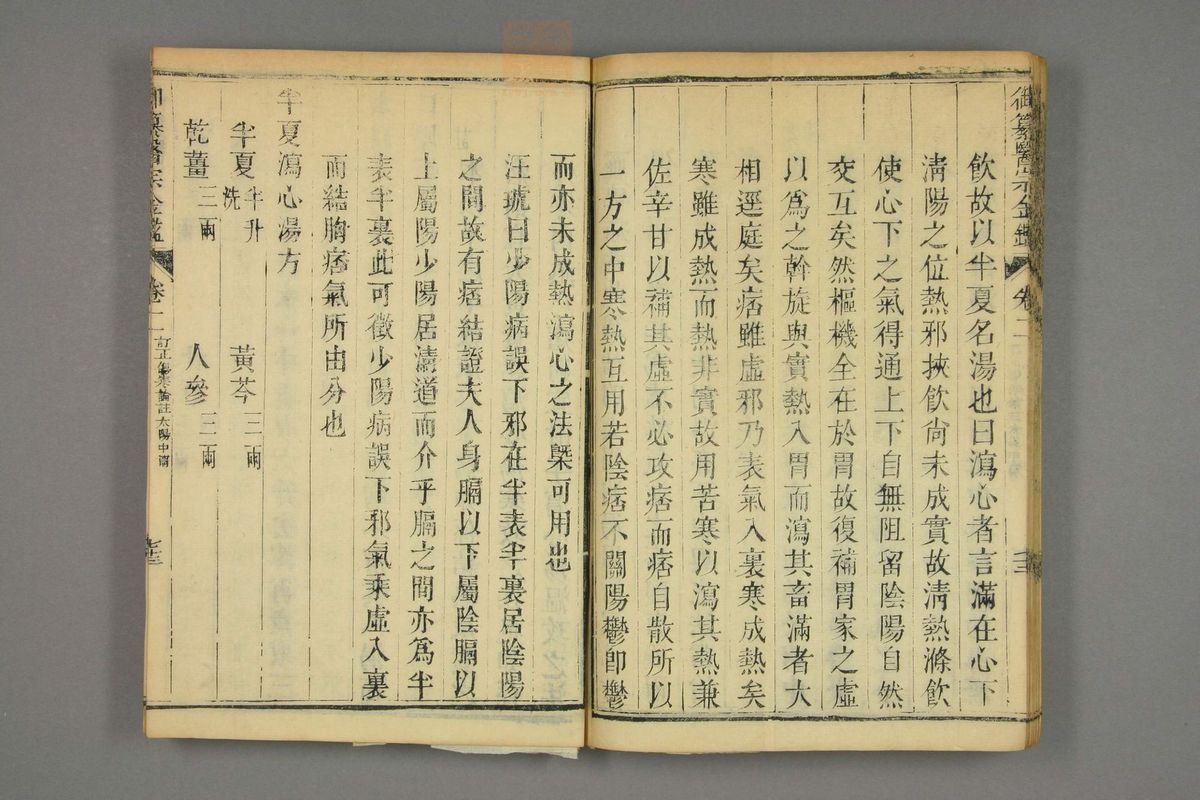 御纂醫宗金鑑 卷二
飲故以半夏名湯也曰瀉心者言滿在心下
淸陽之位熱邪挾飲尙未成實故淸熱滌飲
使心下之氣得通上下自無阻留陰陽自然
交互矣然樞機全在於胃故復補胃家之虛
以爲之幹旋與實熱入胃而瀉其畜滿者大
相逕庭矣痞雖虛邪乃表氣入裏寒成熱矣
寒雖成熱而熱非實故用苦寒以瀉其熱兼
佐辛甘以補其虛不必攻痞而痞自散所以
一方之中寒熱互用若陰痞不關陽鬱卽鬱
而亦未成熱瀉心之法槩可用也
汪琥曰少陽病誤下邪在半表半裏居陰陽
之間故有痞結證夫人身膈以下屬陰膈以
上屬陽少陽居淸道而介乎膈之間亦爲半
表半裏此可徵少陽病誤下邪氣乘虛入裏
而結胸痞氣所由分也
半夏瀉心湯方
半夏半升洗 黃芩三兩
乾薑三兩 人參三兩
御纂醫宗金鑑 卷二 訂正傷寒論註太陽中篇